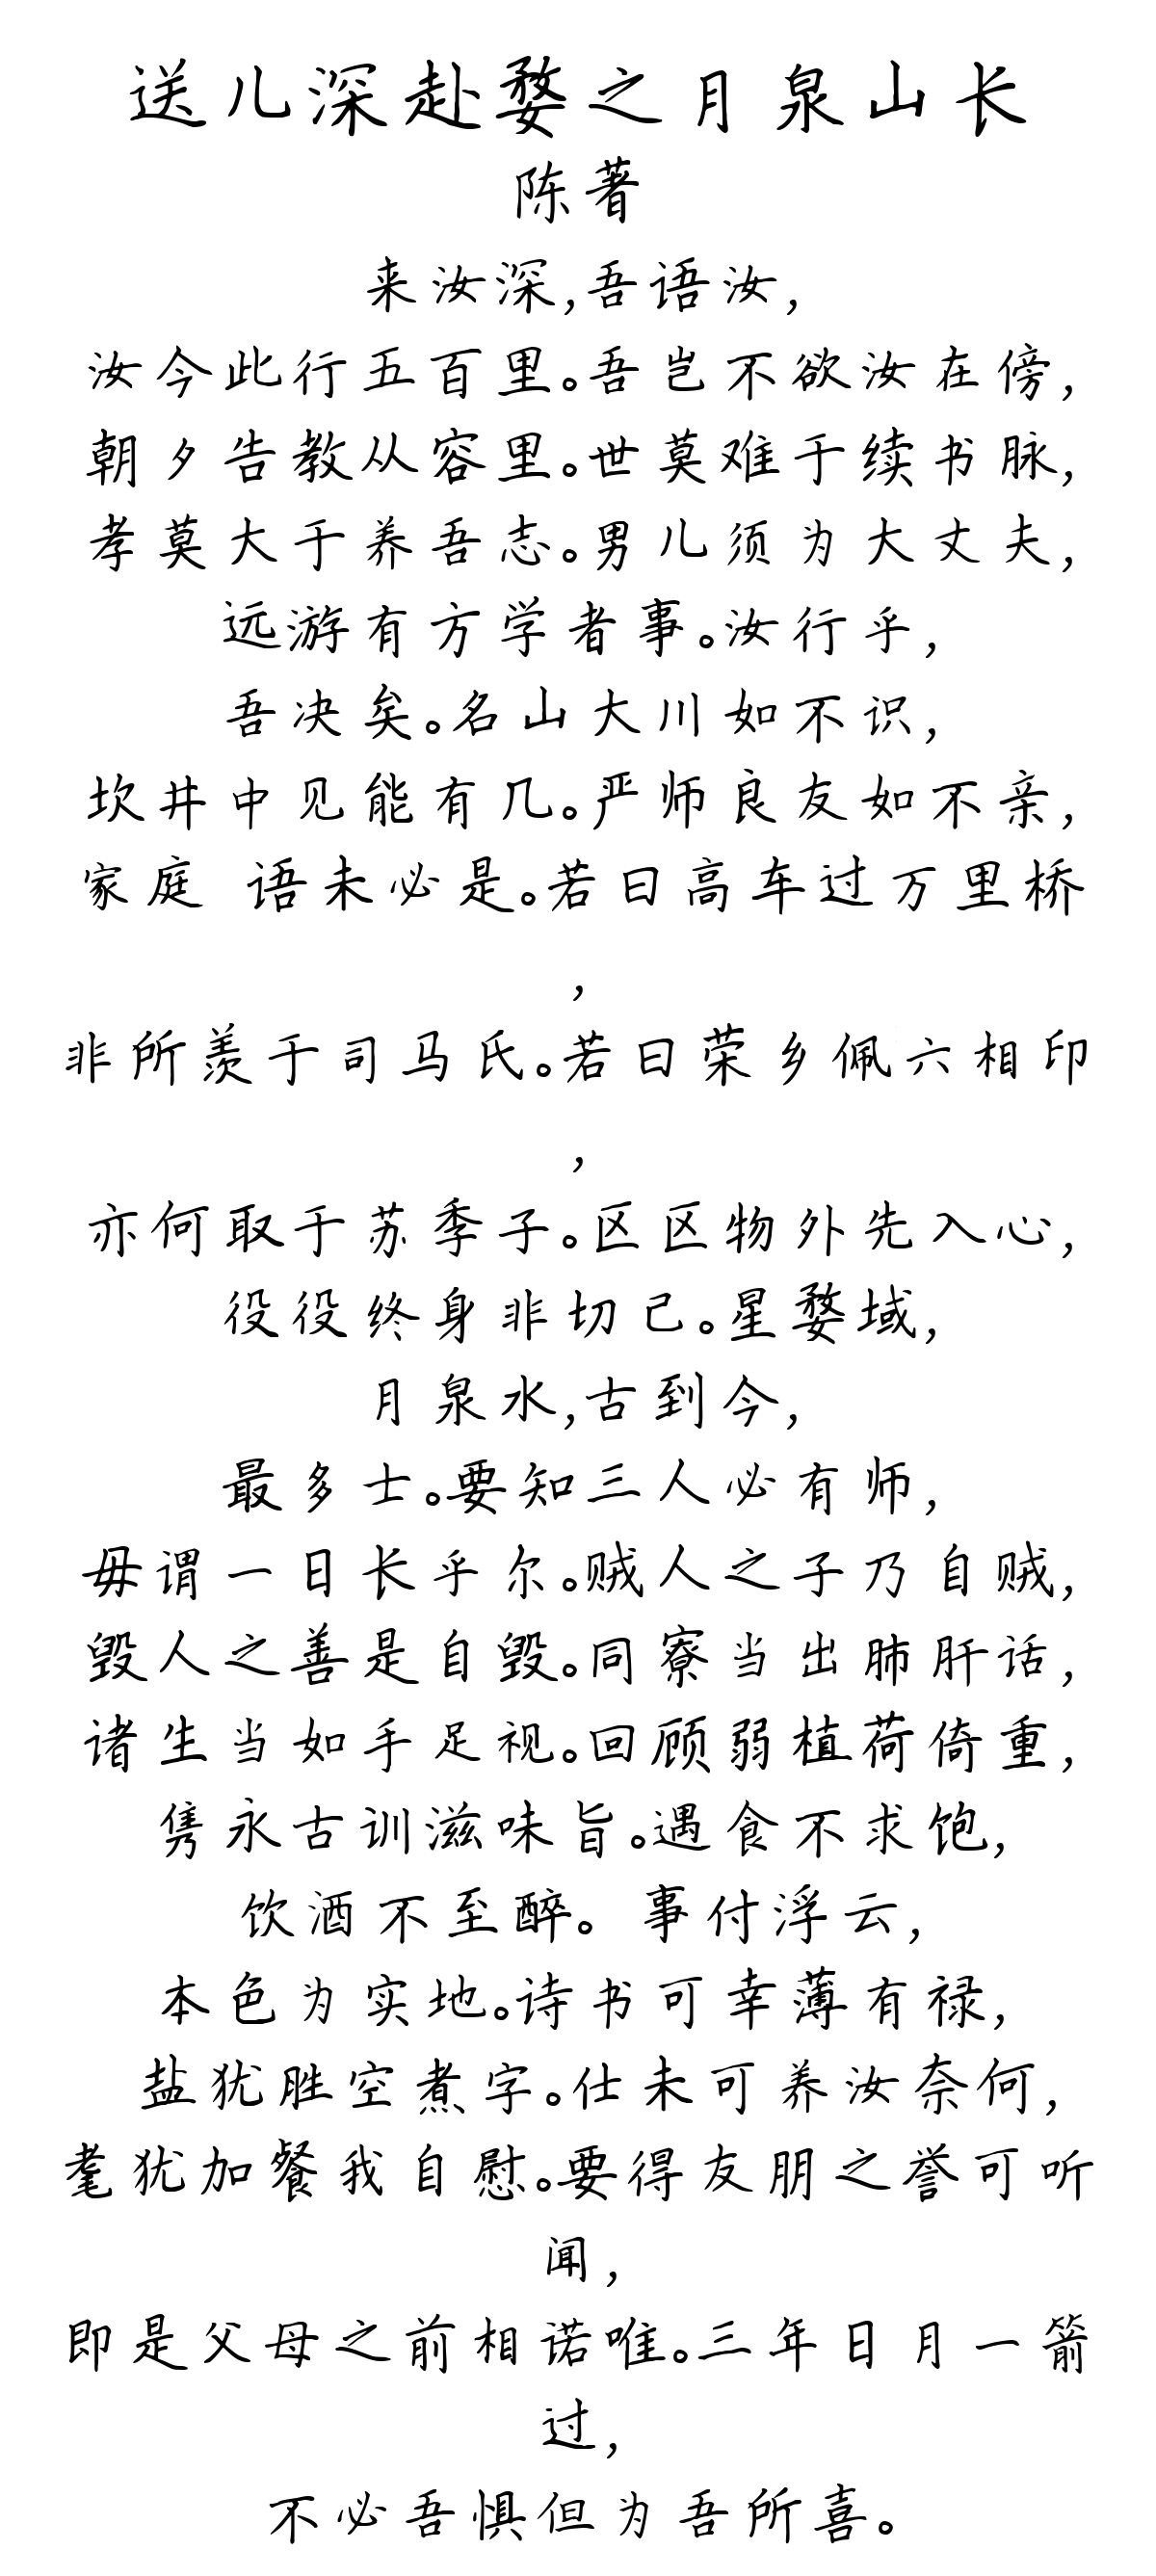 送儿深赴婺之月泉山长
陈著
来汝深,吾语汝,
汝今此行五百里。吾岂不欲汝在傍,
朝夕告教从容里。世莫难于续书脉,
孝莫大于养吾志。男儿须为大丈夫,
远游有方学者事。汝行乎,
吾决矣。名山大川如不识,
坎井中见能有几。严师良友如不亲,
家庭 语未必是。若曰高车过万里桥
,
非所羡于司马氏。若曰荣乡佩六相印
,
亦何取于苏季子。区区物外先入心,
役役终身非切己。星婺域,
月泉水,古到今,
最多士。要知三人必有师,
毋谓一日长乎尔。贼人之子乃自贼,
毁人之善是自毁。同寮当出肺肝话,
诸生当如手足视。回顾弱植荷倚重,
隽永古训滋味旨。遇食不求饱,
饮酒不至醉。 事付浮云,
本色为实地。诗书可幸薄有禄,
盐犹胜空煮字。仕未可养汝奈何,
耄犹加餐我自慰。要得友朋之誉可听
闻,
即是父母之前相诺唯。三年日月一箭
过,
不必吾惧但为吾所喜。